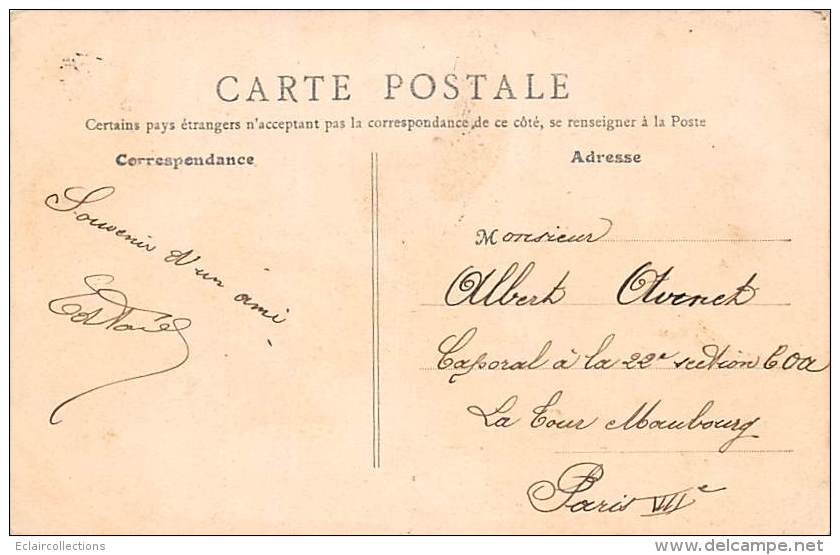 CARTE POSTALE
Certains pays étrangers n'acceptant pas la correspondance de ce côté, se renseigner à la Poste
Correspondance
Adresse
Souvenir d'un ami
Monsieur
Albert Avenet
Caporal à la 22e section COA
La Tour Maubourg
Paris VIIe
Eclaircollections
www.delcampe.net